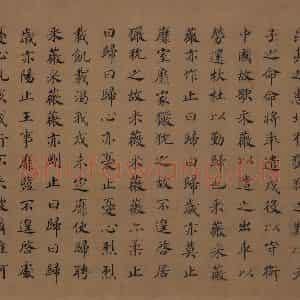 子之命命將率遣戍役以守衛
中國故歌采薇以遣之出車以
勞還杕杜以勤歸也采薇采薇
薇亦作止曰歸曰歸歲亦莫止
靡室靡家玁狁之故不遑啓居
玁狁之故采薇采薇薇亦柔止
曰歸曰歸心亦憂止憂心烈烈
載飢載渴我戍未定靡使歸聘
采薇采薇薇亦剛止曰歸曰歸
歲亦陽止王事靡盬不遑啓處
憂心孔疚我行不來彼爾維何